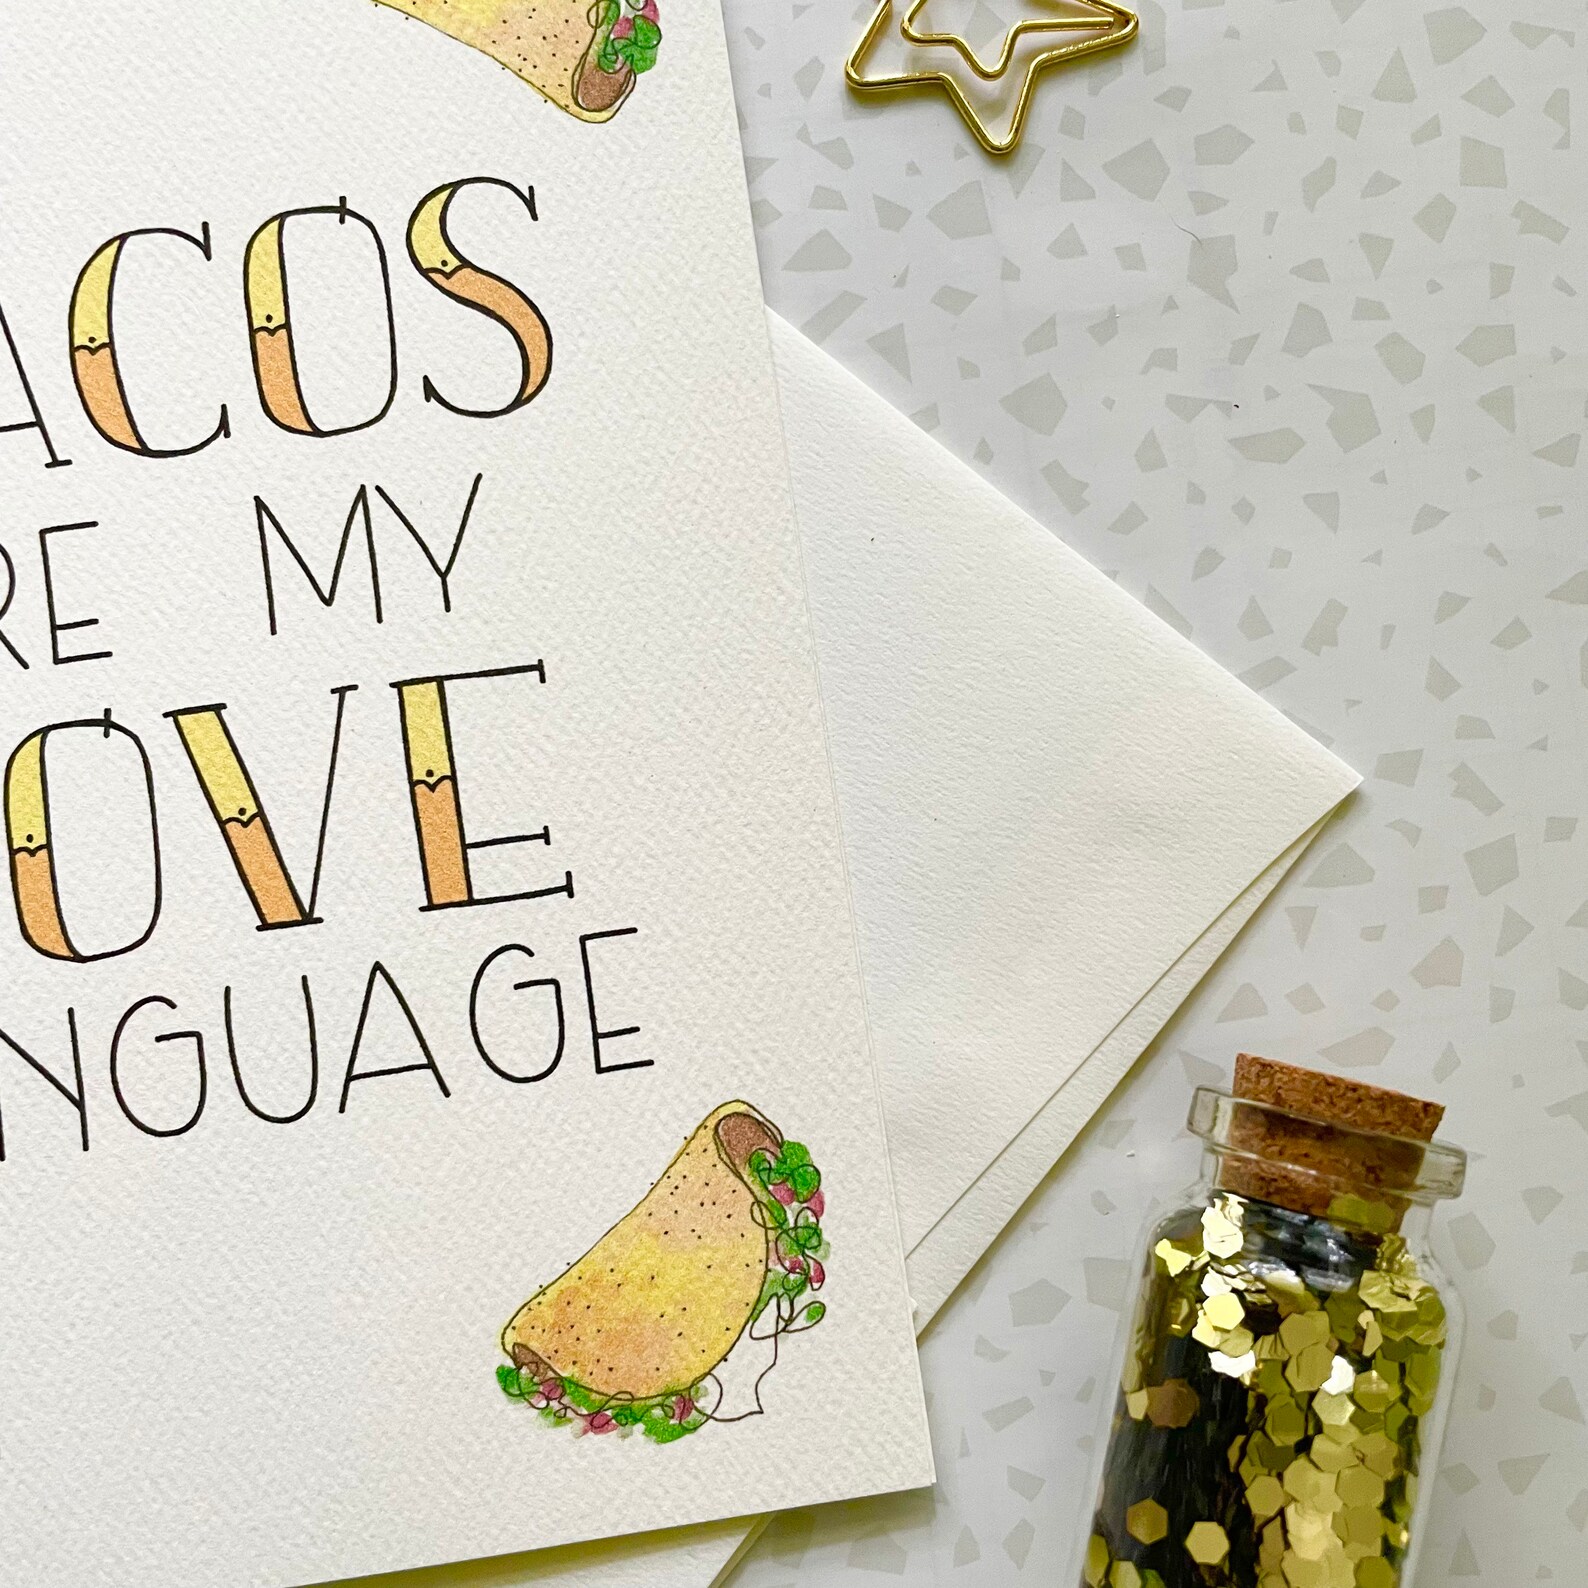 ACOS
RE MY
OVE
NGUAGE